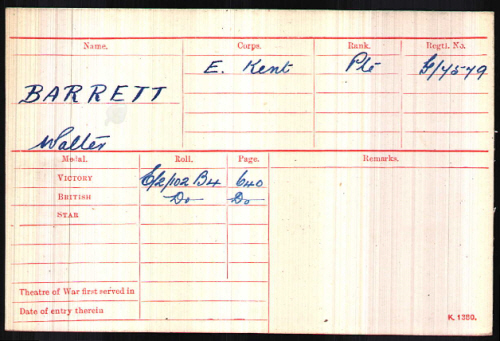 Name. Corps. Rank. Regtl. No.
E. Kent Pte G/4579
BARRETT
Walter
Medal. Roll. Page. Remarks.
VICTORY E/2/102 B4 640
BRITISH Do Do
STAR
Theatre of War first served in
Date of entry therein
K. 1380.